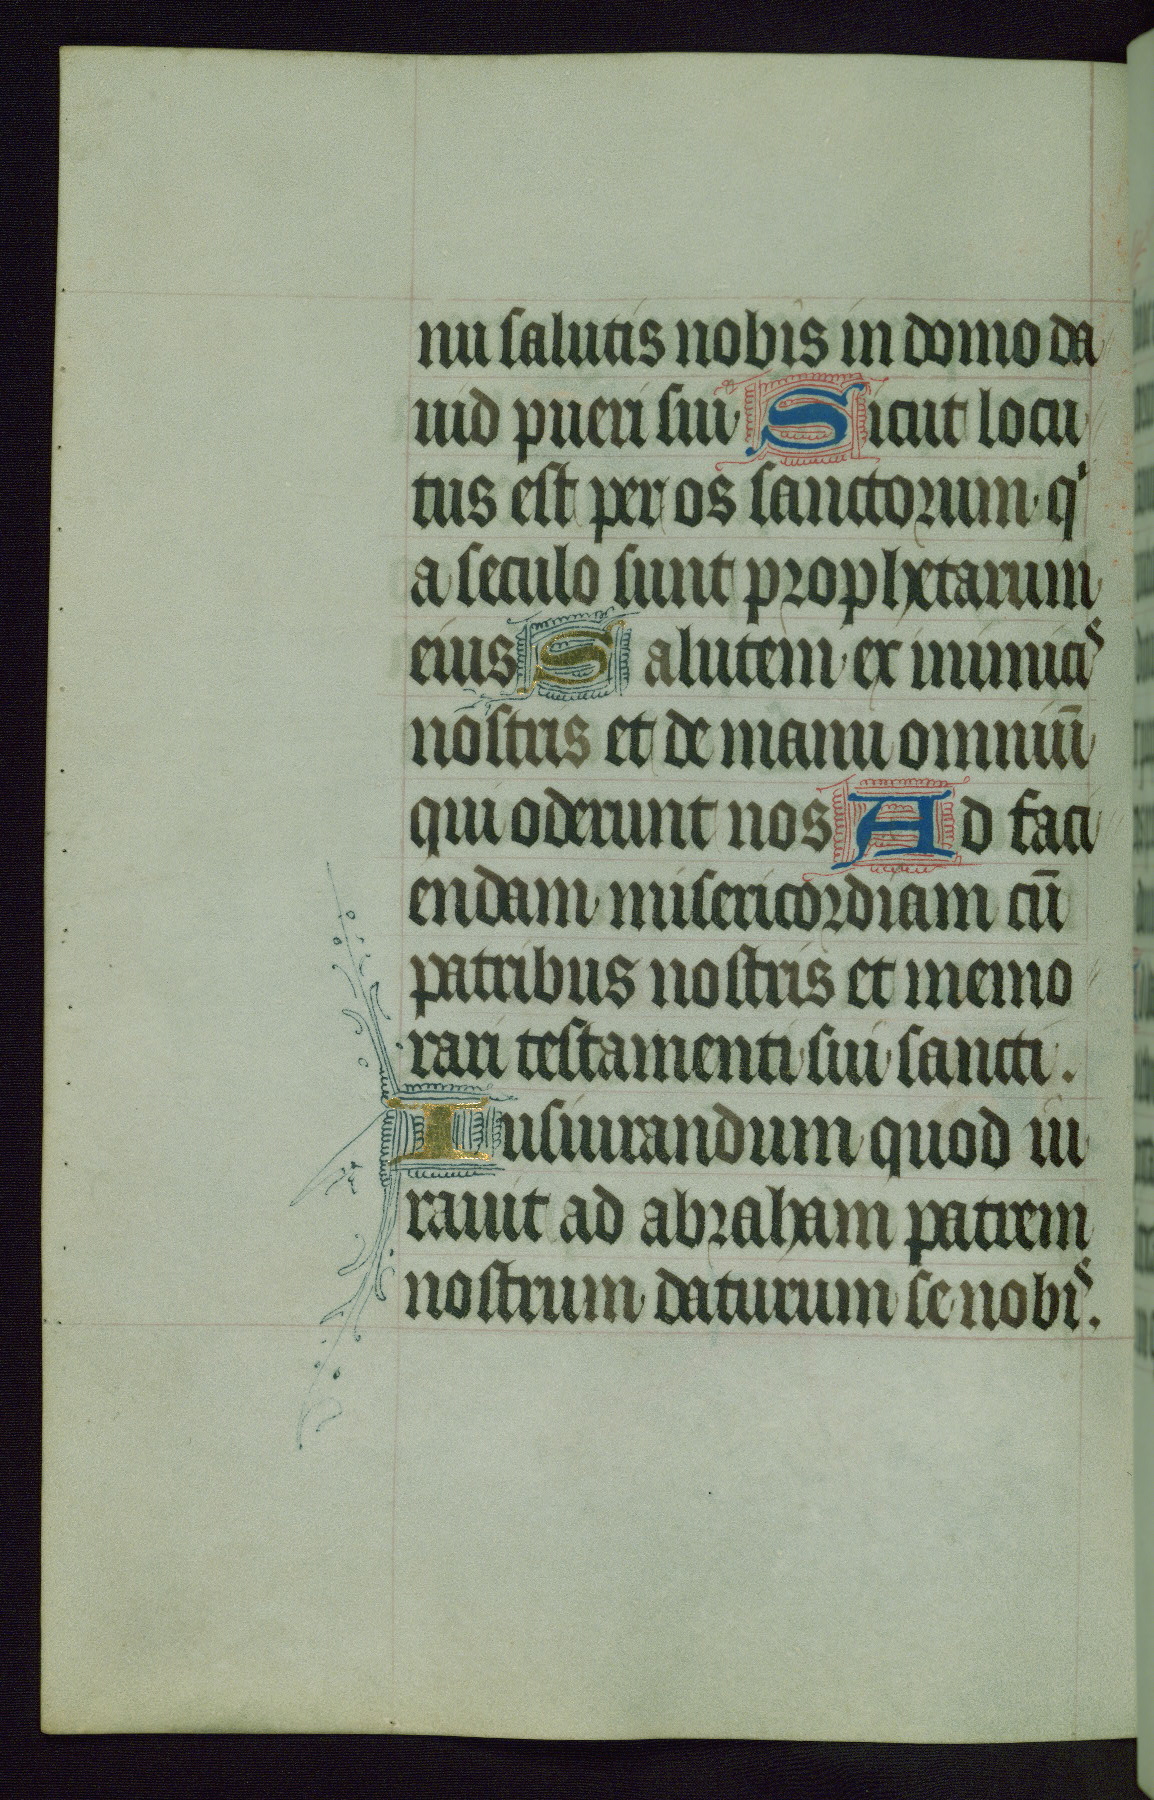 nu salutis nobis in domo da
uid pueri sui Sicut locu
tus est per os sanctorum qͥ
a seculo sunt prophetarum
eius Salutem ex inimicis
nostris et de manu omniū
qui oderunt nos Ad faci
endam misericordiam cū
patribus nostris et memo
rari testamenti sui sancti.
Iusiurandum quod iu
rauit ad abraham patrem
nostrum daturum se nobis.